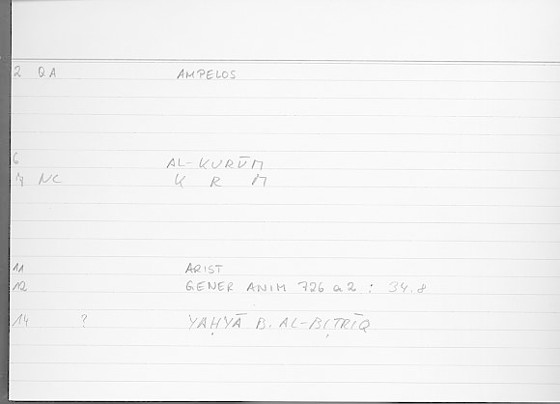 2 QA AMPELOS
6 AL-KURŪM
7 NC K R M
11 ARIST
12 GENER ANIM 726 a 2 : 34.8
14 ? YAḤYĀ B. AL-BIṬRĪQ